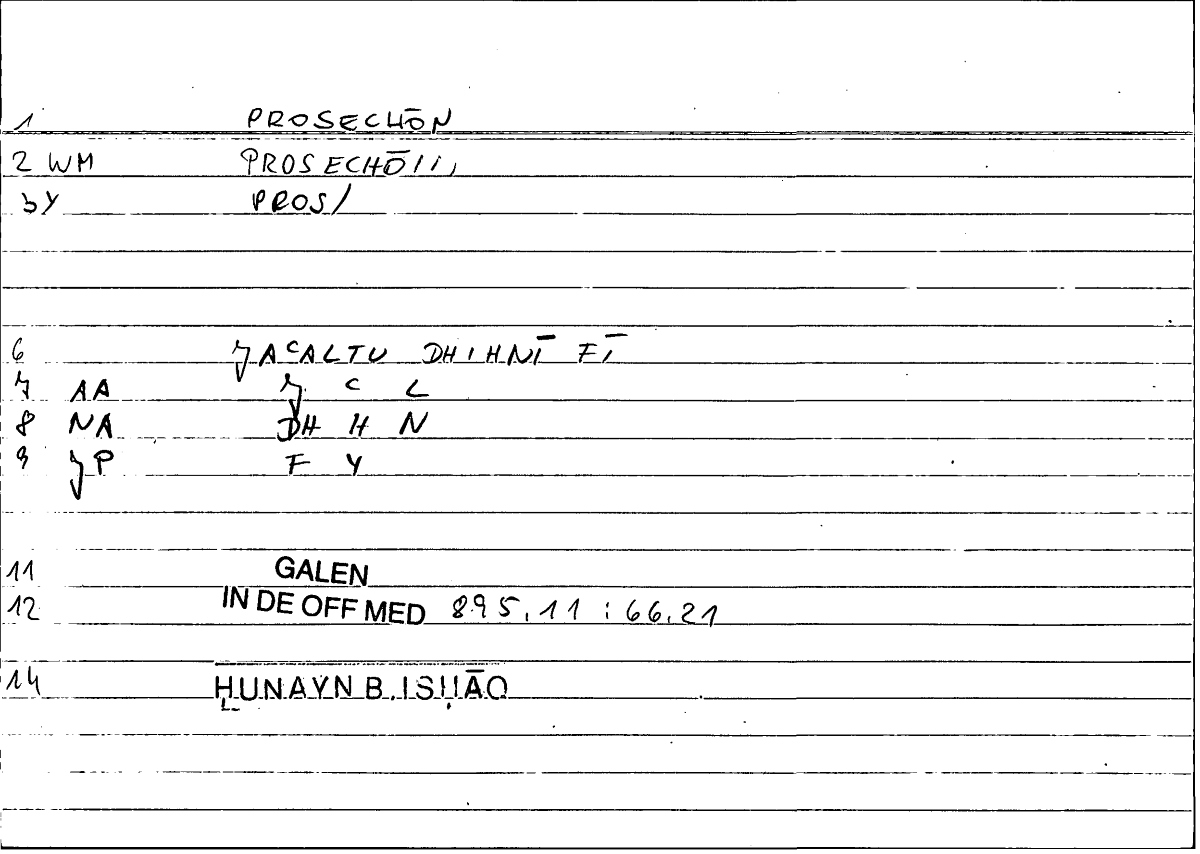 1 PROSECHŌN
2 WM PROSECHŌ/i,
3Y PROS/
6 ǦAᶜALTU DHIHNĪ FĪ
7 AA Ǧ ᶜ L
8 NA DH H N
9 ǦP F Y
11 GALEN
12 IN DE OFF MED 895,11 : 66,21
14 ḤUNAYN B. ISḤĀQ